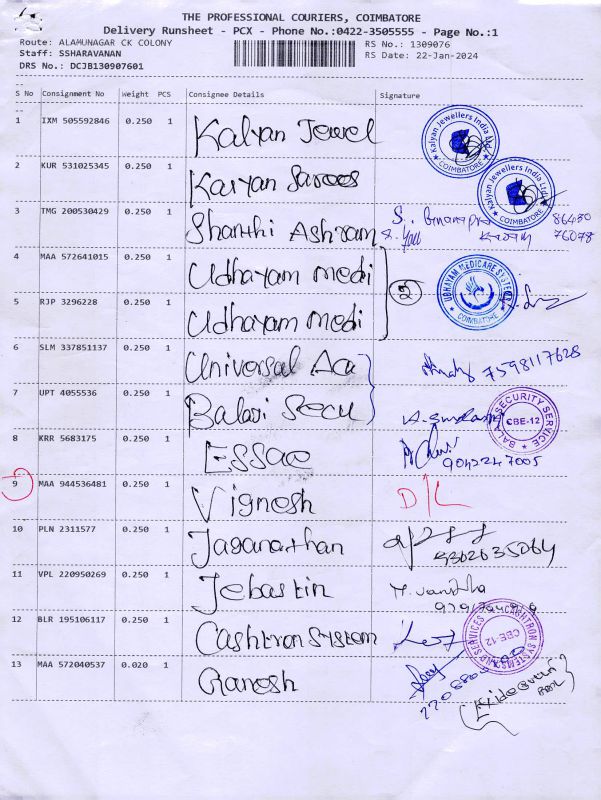 THE PROFESSIONAL COURIERS, COIMBATORE
Delivery Runsheet - PCX - Phone No.:0422-3505555 - Page No.:1
Route: ALAMUNAGAR CK COLONY RS No.: 1309076
Staff: SSHARAVANAN RS Date: 22-Jan-2024
DRS No.: DCJB130907601
S No Consignment No Weight PCS Consignee Details Signature
1 IXM 505592846 0.250 1 Kalyan Jewel
Kalyan Jewellers India Ltd COIMBATORE
2 KUR 531025345 0.250 1 Kalyan Sarees
Kalyan Jewellers India Ltd COIMBATORE
3 TMG 200530429 0.250 1 Shanthi Ashram S. 86430
76078
4 MAA 572641015 0.250 1 Udhayam medi
2 UDHAYAM MEDICARE SYSTEMS COIMBATORE
5 RJP 3296228 0.250 1 Udhayam medi
6 SLM 337851137 0.250 1 Universal Aca 7598117628
7 UPT 4055536 0.250 1 Balaji Secu
BALAJI SECURITY SERVICE CBE-12
8 KRR 5683175 0.250 1 ESSae 9042247005
9 MAA 944536481 0.250 1 Vignesh D/L
10 PLN 2311577 0.250 1 Jaganathan
9362635064
11 VPL 220950269 0.250 1 Jebastin
12 BLR 195106117 0.250 1 Cashtron System
CBE-12
13 MAA 572040537 0.020 1 Ganesh